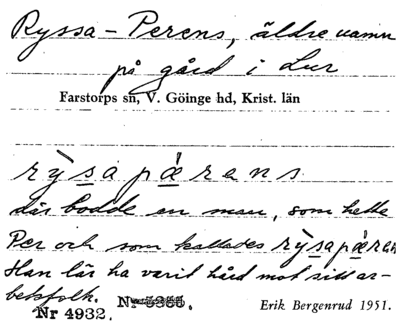 Ryssa-Perens, äldre namn
på gård i Lur
Farstorps sn, V. Göinge hd, Krist. län
rỳsapǽrens
där bodde en man, som hette
Per och som kallades rỳsapǽren
Han lär ha varit hård mot sitt ar-
betsfolk.
Nr 4932. Erik Bergenrud 1951.